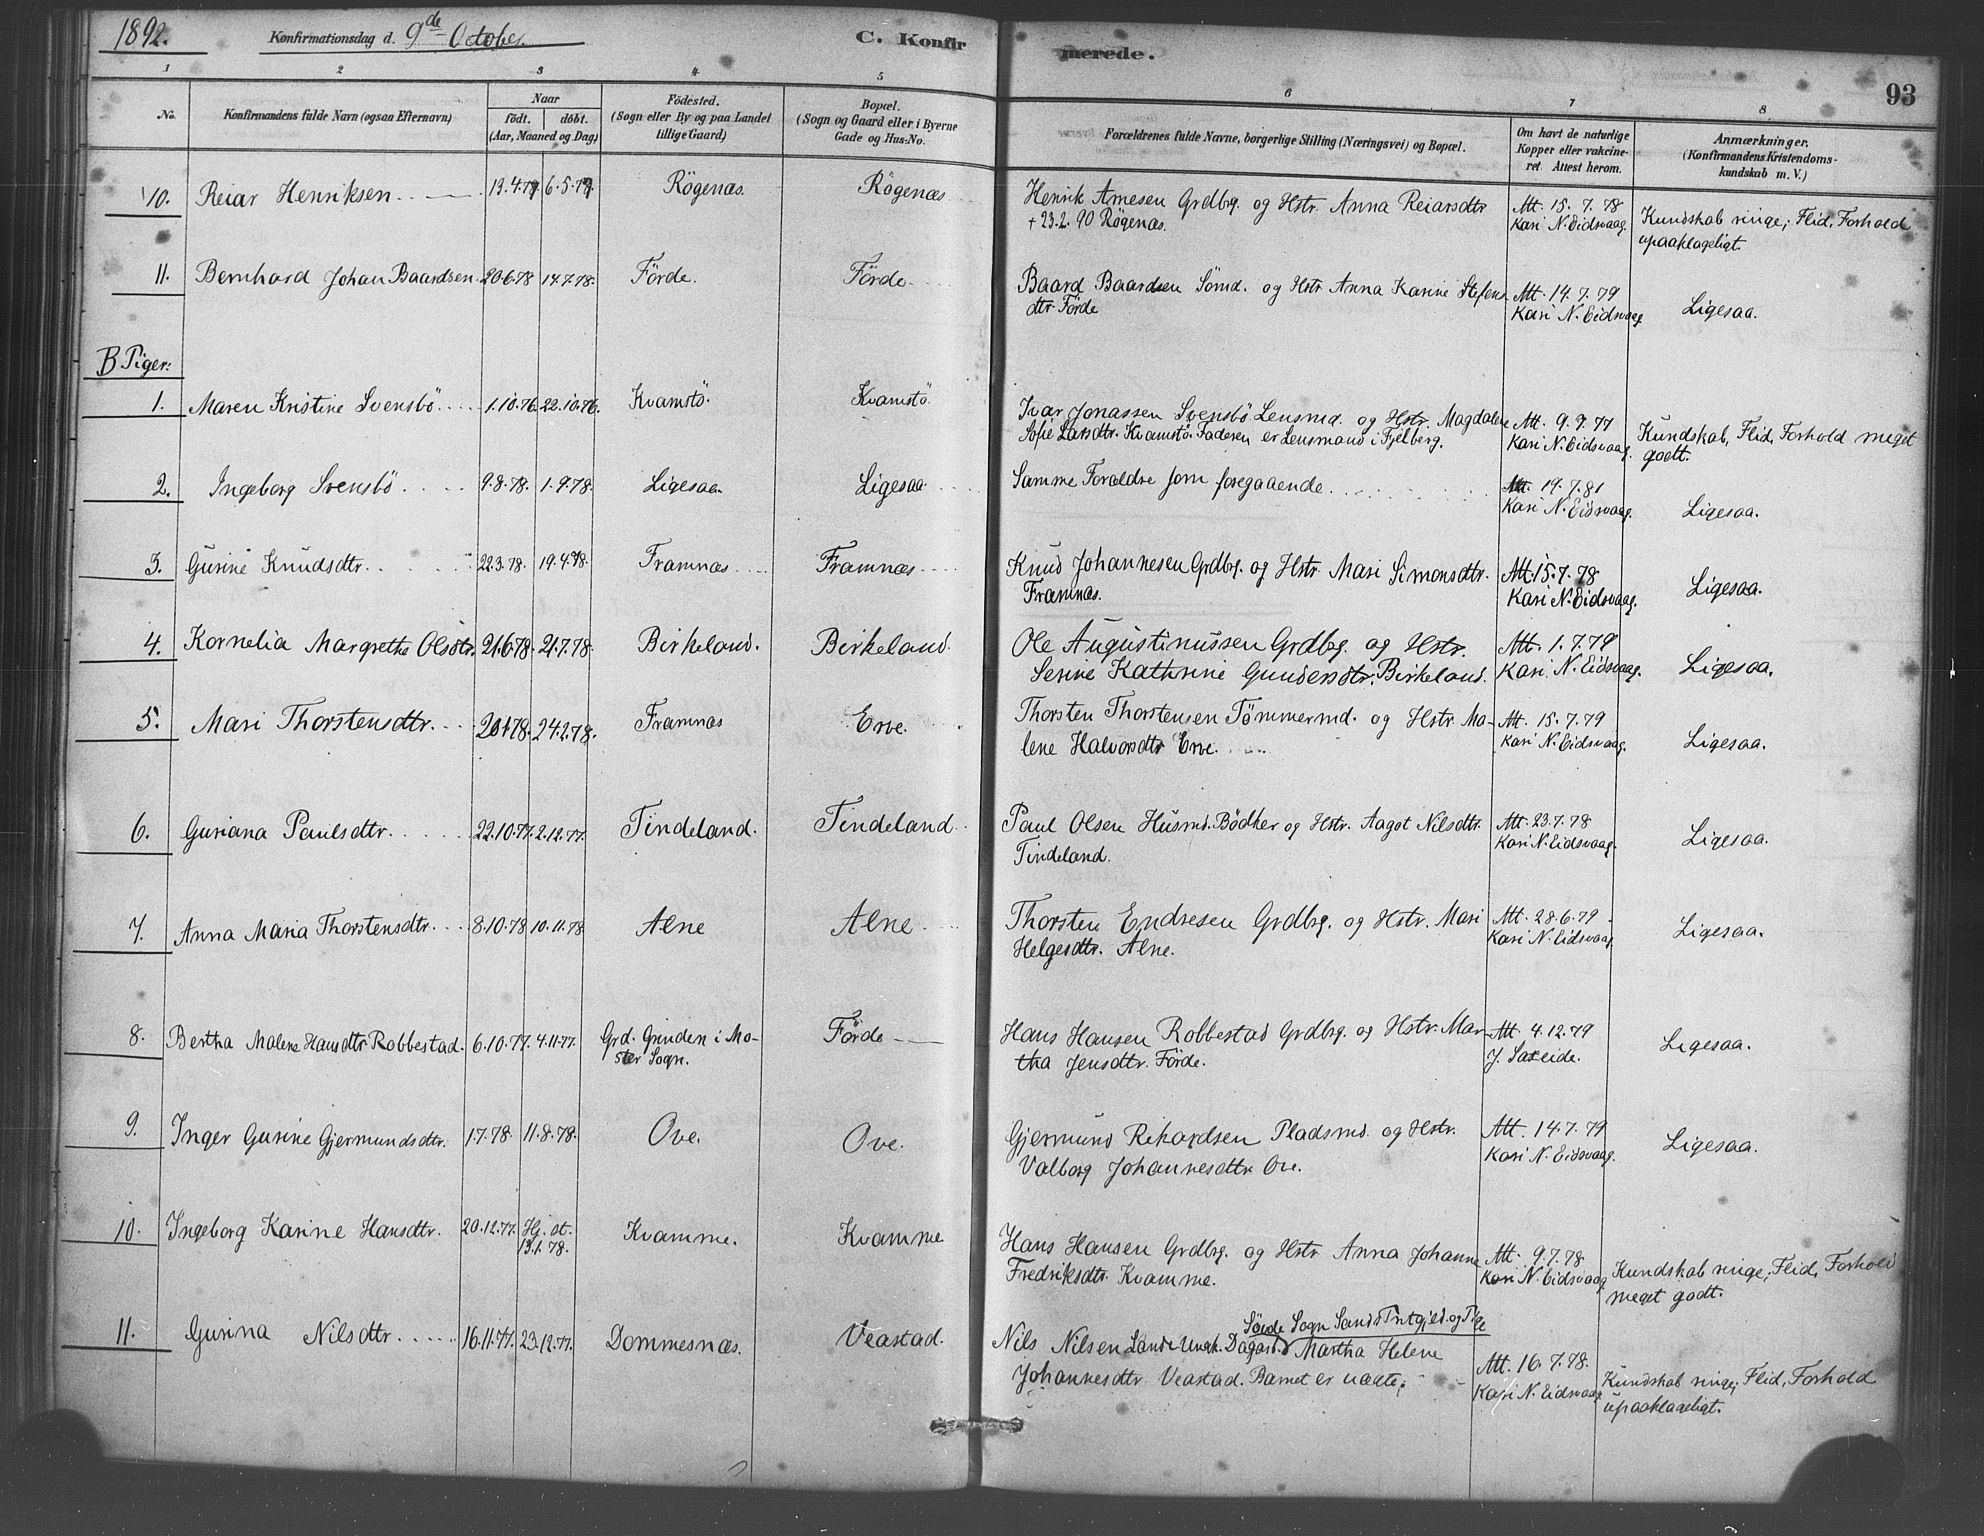 1892. Konfirmationsdag d. 9de October. C. Konfirmerede. 93
1 2 3 4 5 6 7 8
No. Konfirmandens fulde Navn (ogsaa Efternavn) Naar födt. döbt. (Aar, Maaned og Dag) Födested. (Sogn eller By og paa Landet tillige Gaard) Bopæl. (Sogn og Gaard eller i Byerne Gade og Hus-No. Forældrenes fulde Navne, borgerlige Stilling (Næringsvei) og Bopæl. Om havt de naturlige Kopper eller vakcineret. Attest herom. Anmærkninger. (Konfirmandens Kristendomskundskab m. V.)
10. Reiar Henriksen 13.4.77 6.5.77 Rögenæs. Rögenæs Henrik Arnesen Grdbrg. og Hstr. Anna Reiarsdtr Att. 15.7.78
+ 23.2.90 Rögenæs. Kari N. Eidsvaag. Kundskab ringe; Flid, Forhold
upaaklageligt.
11. Bernhard Johan Baardsen. 20.6.78 14.7.78. Förde. Förde. Baard Baardsen Sömd. og Hstr Anna Karine Stefens Att. 14.7.79
dtr Förde Kari N. Eidsvaag Ligesaa.
B Piger:
1. Maren Kristine Svensbö 1.10.76. 22.10.76. Kvamstö. Kvamstö. Ivar Jonassen Svensbö Lensmd. og Hstr. Magdalene Att. 9.9.77
Sofie Larsdtr. Kvamstö. Faderen er Lensmand i Fjelberg. Kari N. Eidsvaag. Kundskab, Flid, Forhold meget
godt.
2. Ingeborg Svensbö 9.8.78. 1.9.78. Ligesaa. Ligesaa Samme Forældre som foregaaende Att. 19.7.81
Kari N. Eidsvaag. Ligesaa.
3. Gurine Knudsdtr. 22.3.78. 19.4.78. Framnæs Framnæs Knud Johannesen Grdbrg. og Hstr. Mari Simonsdtr. Att. 15.7.78
Framnæs. Kari N. Eidsvaag. Ligesaa.
4. Kornelia Margrethe Olsdtr. 21.6.78. 21.7.78. Birkeland. Birkeland. Ole Augustinussen Grdbrg. og Hstr. Att. 1.7.79
Serine Kathrine Gundersdtr. Birkeland. Kari N. Eidsvaag. Ligesaa.
5. Mari Thorstensdtr. 20.1.78. 24.2.78. Framnæs Erve. Thorsten Thorstensen Tömmermd. og Hstr. Ma- Att. 15.7.79
lene Halvorsdtr Erve. Kari N. Eidsvaag. Ligesaa.
6. Guriana Paulsdtr. 22.10.77. 2.12.77. Tindeland. Tindeland. Paul Olsen Husmd. Bödker og Hstr. Aagot Nilsdtr. Att. 23.7.78
Tindeland. Kari N. Eidsvaag. Ligesaa.
7. Anna Maria Thorstensdtr. 8.10.78. 10.11.78 Alne Alne Thorsten Endresen Grdbrg. og Hstr. Mari Att. 28.6.79
Helgesdtr. Alne. Kari N. Eidsvaag Ligesaa.
8. Bertha Malene Hansdtr Robbestad. 6.10.77. 4.11.77. Grd. Grinden i Mo- Förde Hans Hansen Robbestad Grdbrg. og Hstr. Mar- Att. 4.12.79
ster Sogn. tha Jensdtr. Förde. J. Saxeide. Ligesaa.
9. Inger Gurine Gjermundsdtr. 1.7.78. 11.8.78. Ove. Ove. Gjermund Rikardsen Pladsmd. og Hstr. Att. 14.7.79
Valborg Johannesdtr. Ove. Kari N. Eidsvaag. Ligesaa.
10. Ingeborg Karine Hansdtr. 20.12.77. Hj. dt. 13.1.78. Kvamme. Kvamme Hans Hansen Grdbrg. og Hstr Anna Johanne Att. 9.7.78
Fredriksdtr. Kvamme. Kari N. Eidsvaag Kundskab ringe; Flid, Forhold
meget godt.
11. Gurina Nilsdtr. 16.11.77. 23.12.77. Dommesnæs. Veastad. Nils Nilsen Lande Ungk. Sörde Sogn Sands Prtgjeld. og Pige Martha Helene Att. 16.7.78.
Johannesdtr Veastad. Barnet er uægte. Kari N. Eidsvaag Kundskab ringe; Flid, Forhold
upaaklageligt.